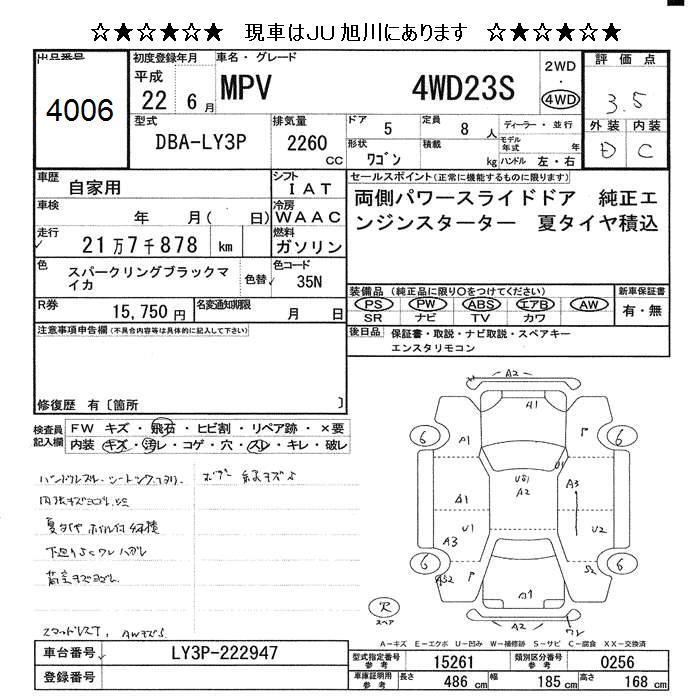 ☆★☆★☆★ 現車はJU旭川にあります ☆★☆★☆★
出品番号
4006
初度登録年月
平成
22 6 月
車名・グレード
MPV 4WD23S
2WD
・
4WD
評価点
3.5
外装 内装
D C
型式
DBA-LY3P
排気量
2260 CC
ドア 5
定員 8 人
ディーラー・並行
形状 ワゴン
積載 kg
モデル年式 年
ハンドル 左・右
車歴
自家用
シフト
IAT
車検
年 月( 日)
冷房
WAAC
走行
21万7千878 km
燃料
ガソリン
色
スパークリングブラックマイカ
色替
色コード
35N
R券
15,750 円
名変通知期限
月 日
セールスポイント(正常に機能するものに限ります)
両側パワースライドドア 純正エ
ンジンスターター 夏タイヤ積込
装備品(純正品に限り○をつけてください)
PS PW ABS エアB AW
SR ナビ TV カワ
新車保証書
有・無
後日品 保証書・取説・ナビ取説・スペアキー
エンスタリモコン
注意事項申告欄(不具合内容等は具体的に記入して下さい)
修復歴 有〔箇所 〕
検査員記入欄
FW キズ・飛石・ヒビ割・リペア跡・×要
内装 キズ・汚レ・コゲ・穴・スレ・キレ・破レ
下廻りサビ
A2
A1
6 6
A1 P
U1
US1
A2
A3
A1
U1 U2
A3
6 6
P
S2
A2
スペア
A-キズ E-エクボ U-凹み W-補修跡 S-サビ C-腐食 XX-交換済
車台番号
LY3P-222947
登録番号
型式指定番号 参考
15261
類別区分番号 参考
0256
車庫証明用 参考
長さ 486 cm
幅 185 cm
高さ 168 cm